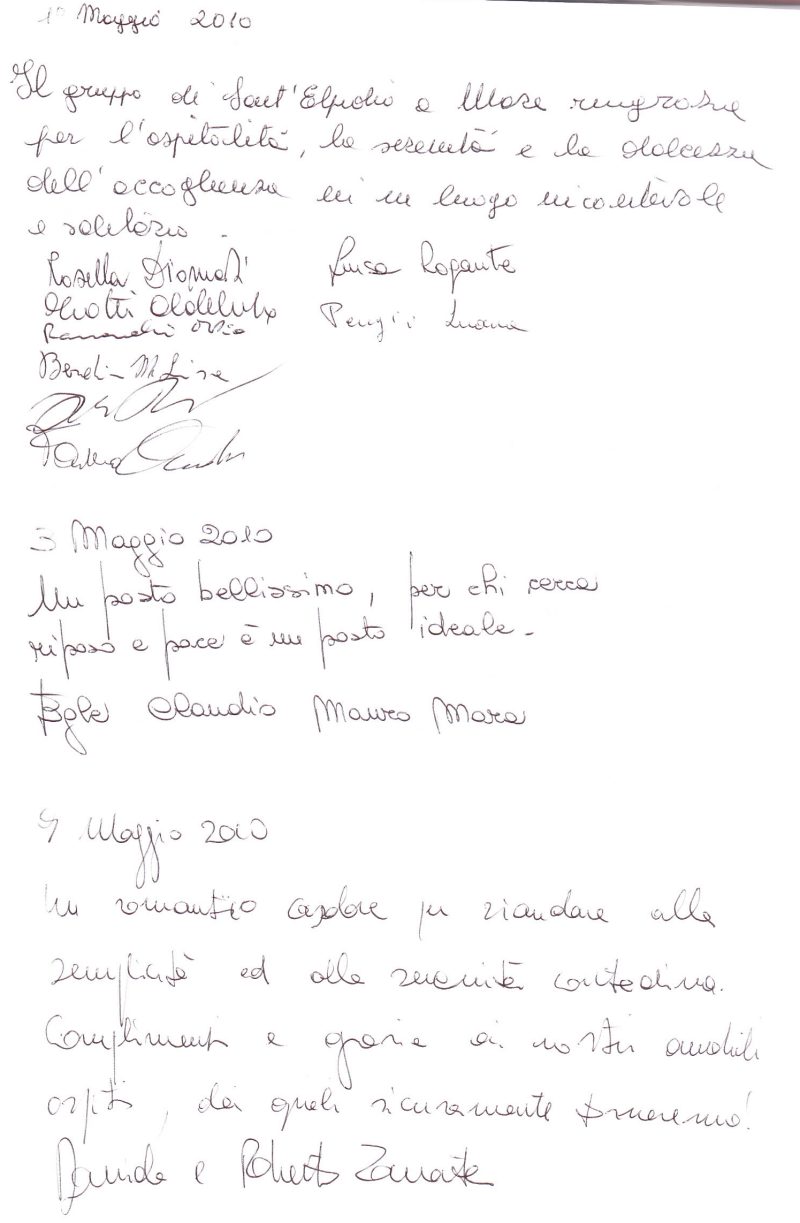 1° Maggio 2010
Il gruppo di Sant'Elpidio a Mare ringrazia
per l'ospitalità, la serenità e la dolcezza
dell'accoglienza in un luogo incantevole
e solitario.
Rosella Luisa Rogante
Luciana
M. Lisa
3 Maggio 2010
Un posto bellissimo, per chi cerca
riposo e pace è un posto ideale.
Egle Claudio Mauro Mara
9 Maggio 2010
Un romantico casolare per riandare alla
semplicità ed alla serenità contadina.
Complimenti e grazie ai nostri amabili
ospiti, dai quali sicuramente torneremo!
Davide e Roberta